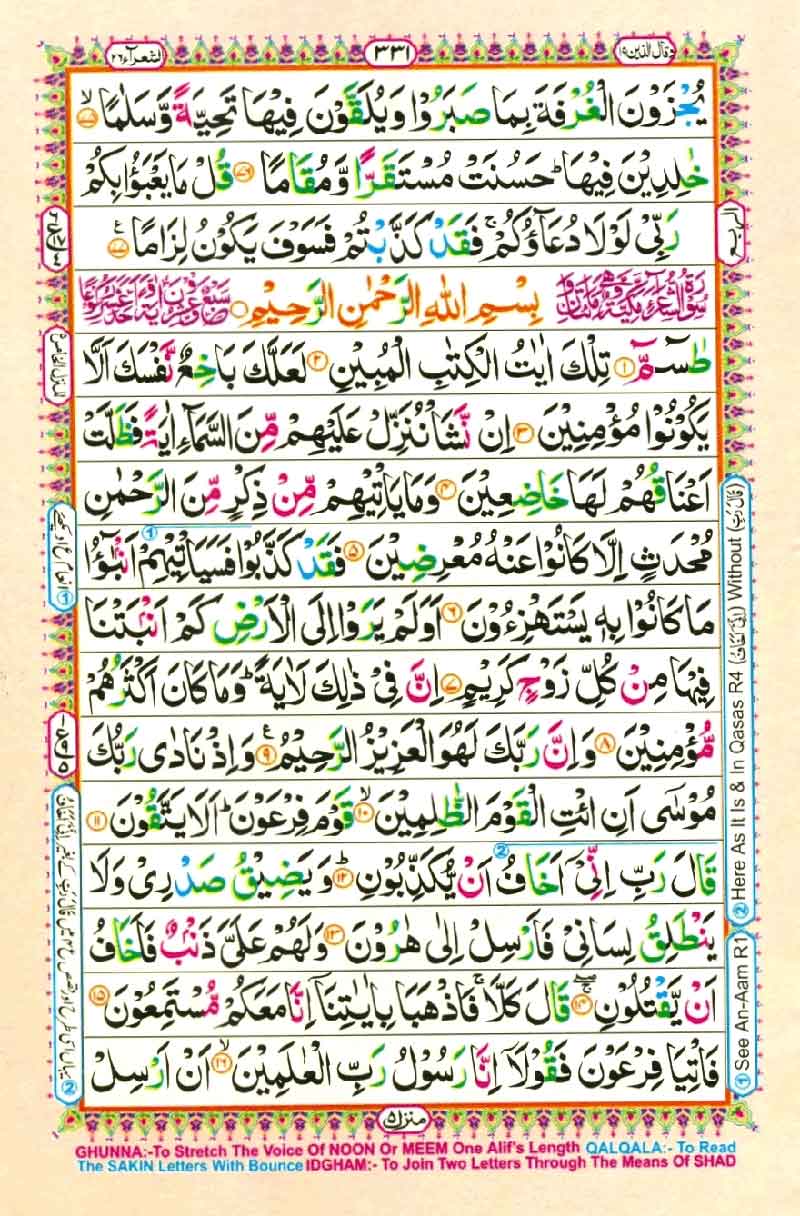 وقال الذین ۱۹
۳۳۱
الشعرآء ۲۶
يُجْزَوْنَ الْغُرْفَةَ بِمَا صَبَرُوْا وَيُلَقَّوْنَ فِيْهَا تَحِيَّةً وَّسَلٰمًا ۙ۝۷۵
خٰلِدِيْنَ فِيْهَا ؕ حَسُنَتْ مُسْتَقَرًّا وَّمُقَامًا ۝۷۶ قُلْ مَا يَعْبَؤُا بِكُمْ
رَبِّيْ لَوْلَا دُعَآؤُكُمْ ۚ فَقَدْ كَذَّبْتُمْ فَسَوْفَ يَكُوْنُ لِزَامًا ۝۷۷
بِسْمِ اللّٰهِ الرَّحْمٰنِ الرَّحِيْمِ
طٰسٓمّٓ ۝۱ تِلْكَ اٰيٰتُ الْكِتٰبِ الْمُبِيْنِ ۝۲ لَعَلَّكَ بَاخِعٌ نَّفْسَكَ اَلَّا
يَكُوْنُوْا مُؤْمِنِيْنَ ۝۳ اِنْ نَّشَاْ نُنَزِّلْ عَلَيْهِمْ مِّنَ السَّمَآءِ اٰيَةً فَظَلَّتْ
اَعْنَاقُهُمْ لَهَا خَاضِعِيْنَ ۝۴ وَمَا يَاْتِيْهِمْ مِّنْ ذِكْرٍ مِّنَ الرَّحْمٰنِ
مُحْدَثٍ اِلَّا كَانُوْا عَنْهُ مُعْرِضِيْنَ ۝۵ فَقَدْ كَذَّبُوْا فَسَيَاْتِيْهِمْ اَنْۢبٰٓؤُا
مَا كَانُوْا بِهٖ يَسْتَهْزِءُوْنَ ۝۶ اَوَلَمْ يَرَوْا اِلَى الْاَرْضِ كَمْ اَنْۢبَتْنَا
فِيْهَا مِنْ كُلِّ زَوْجٍ كَرِيْمٍ ۝۷ اِنَّ فِيْ ذٰلِكَ لَاٰيَةً ؕ وَمَا كَانَ اَكْثَرُهُمْ
مُّؤْمِنِيْنَ ۝۸ وَاِنَّ رَبَّكَ لَهُوَ الْعَزِيْزُ الرَّحِيْمُ ۝۹ وَاِذْ نَادٰى رَبُّكَ
مُوْسٰٓى اَنِ ائْتِ الْقَوْمَ الظّٰلِمِيْنَ ۙ۝۱۰ قَوْمَ فِرْعَوْنَ ؕ اَلَا يَتَّقُوْنَ ۝۱۱
قَالَ رَبِّ اِنِّيْٓ اَخَافُ اَنْ يُّكَذِّبُوْنِ ؕ۝۱۲ وَيَضِيْقُ صَدْرِيْ وَلَا
يَنْطَلِقُ لِسَانِيْ فَاَرْسِلْ اِلٰى هٰرُوْنَ ۝۱۳ وَلَهُمْ عَلَيَّ ذَنْۢبٌ فَاَخَافُ
اَنْ يَّقْتُلُوْنِ ۝۱۴ قَالَ كَلَّا ۚ فَاذْهَبَا بِاٰيٰتِنَآ اِنَّا مَعَكُمْ مُّسْتَمِعُوْنَ ۝۱۵
فَاْتِيَا فِرْعَوْنَ فَقُوْلَآ اِنَّا رَسُوْلُ رَبِّ الْعٰلَمِيْنَ ۙ۝۱۶ اَنْ اَرْسِلْ
منزل ۵
① See An-Aam R1 ② Here As It Is & In Qasas R4 Without (قَالَ رَبِّ)
GHUNNA:-To Stretch The Voice Of NOON Or MEEM One Alif's Length QALQALA:- To Read
The SAKIN Letters With Bounce IDGHAM:- To Join Two Letters Through The Means Of SHAD